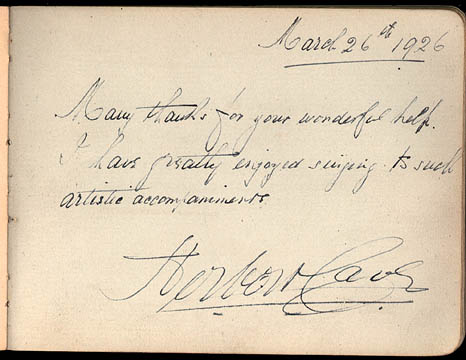 March 26th 1926
Many thanks for your wonderful help.
I have greatly enjoyed singing to such
artistic accompaniments
Herbert Cave